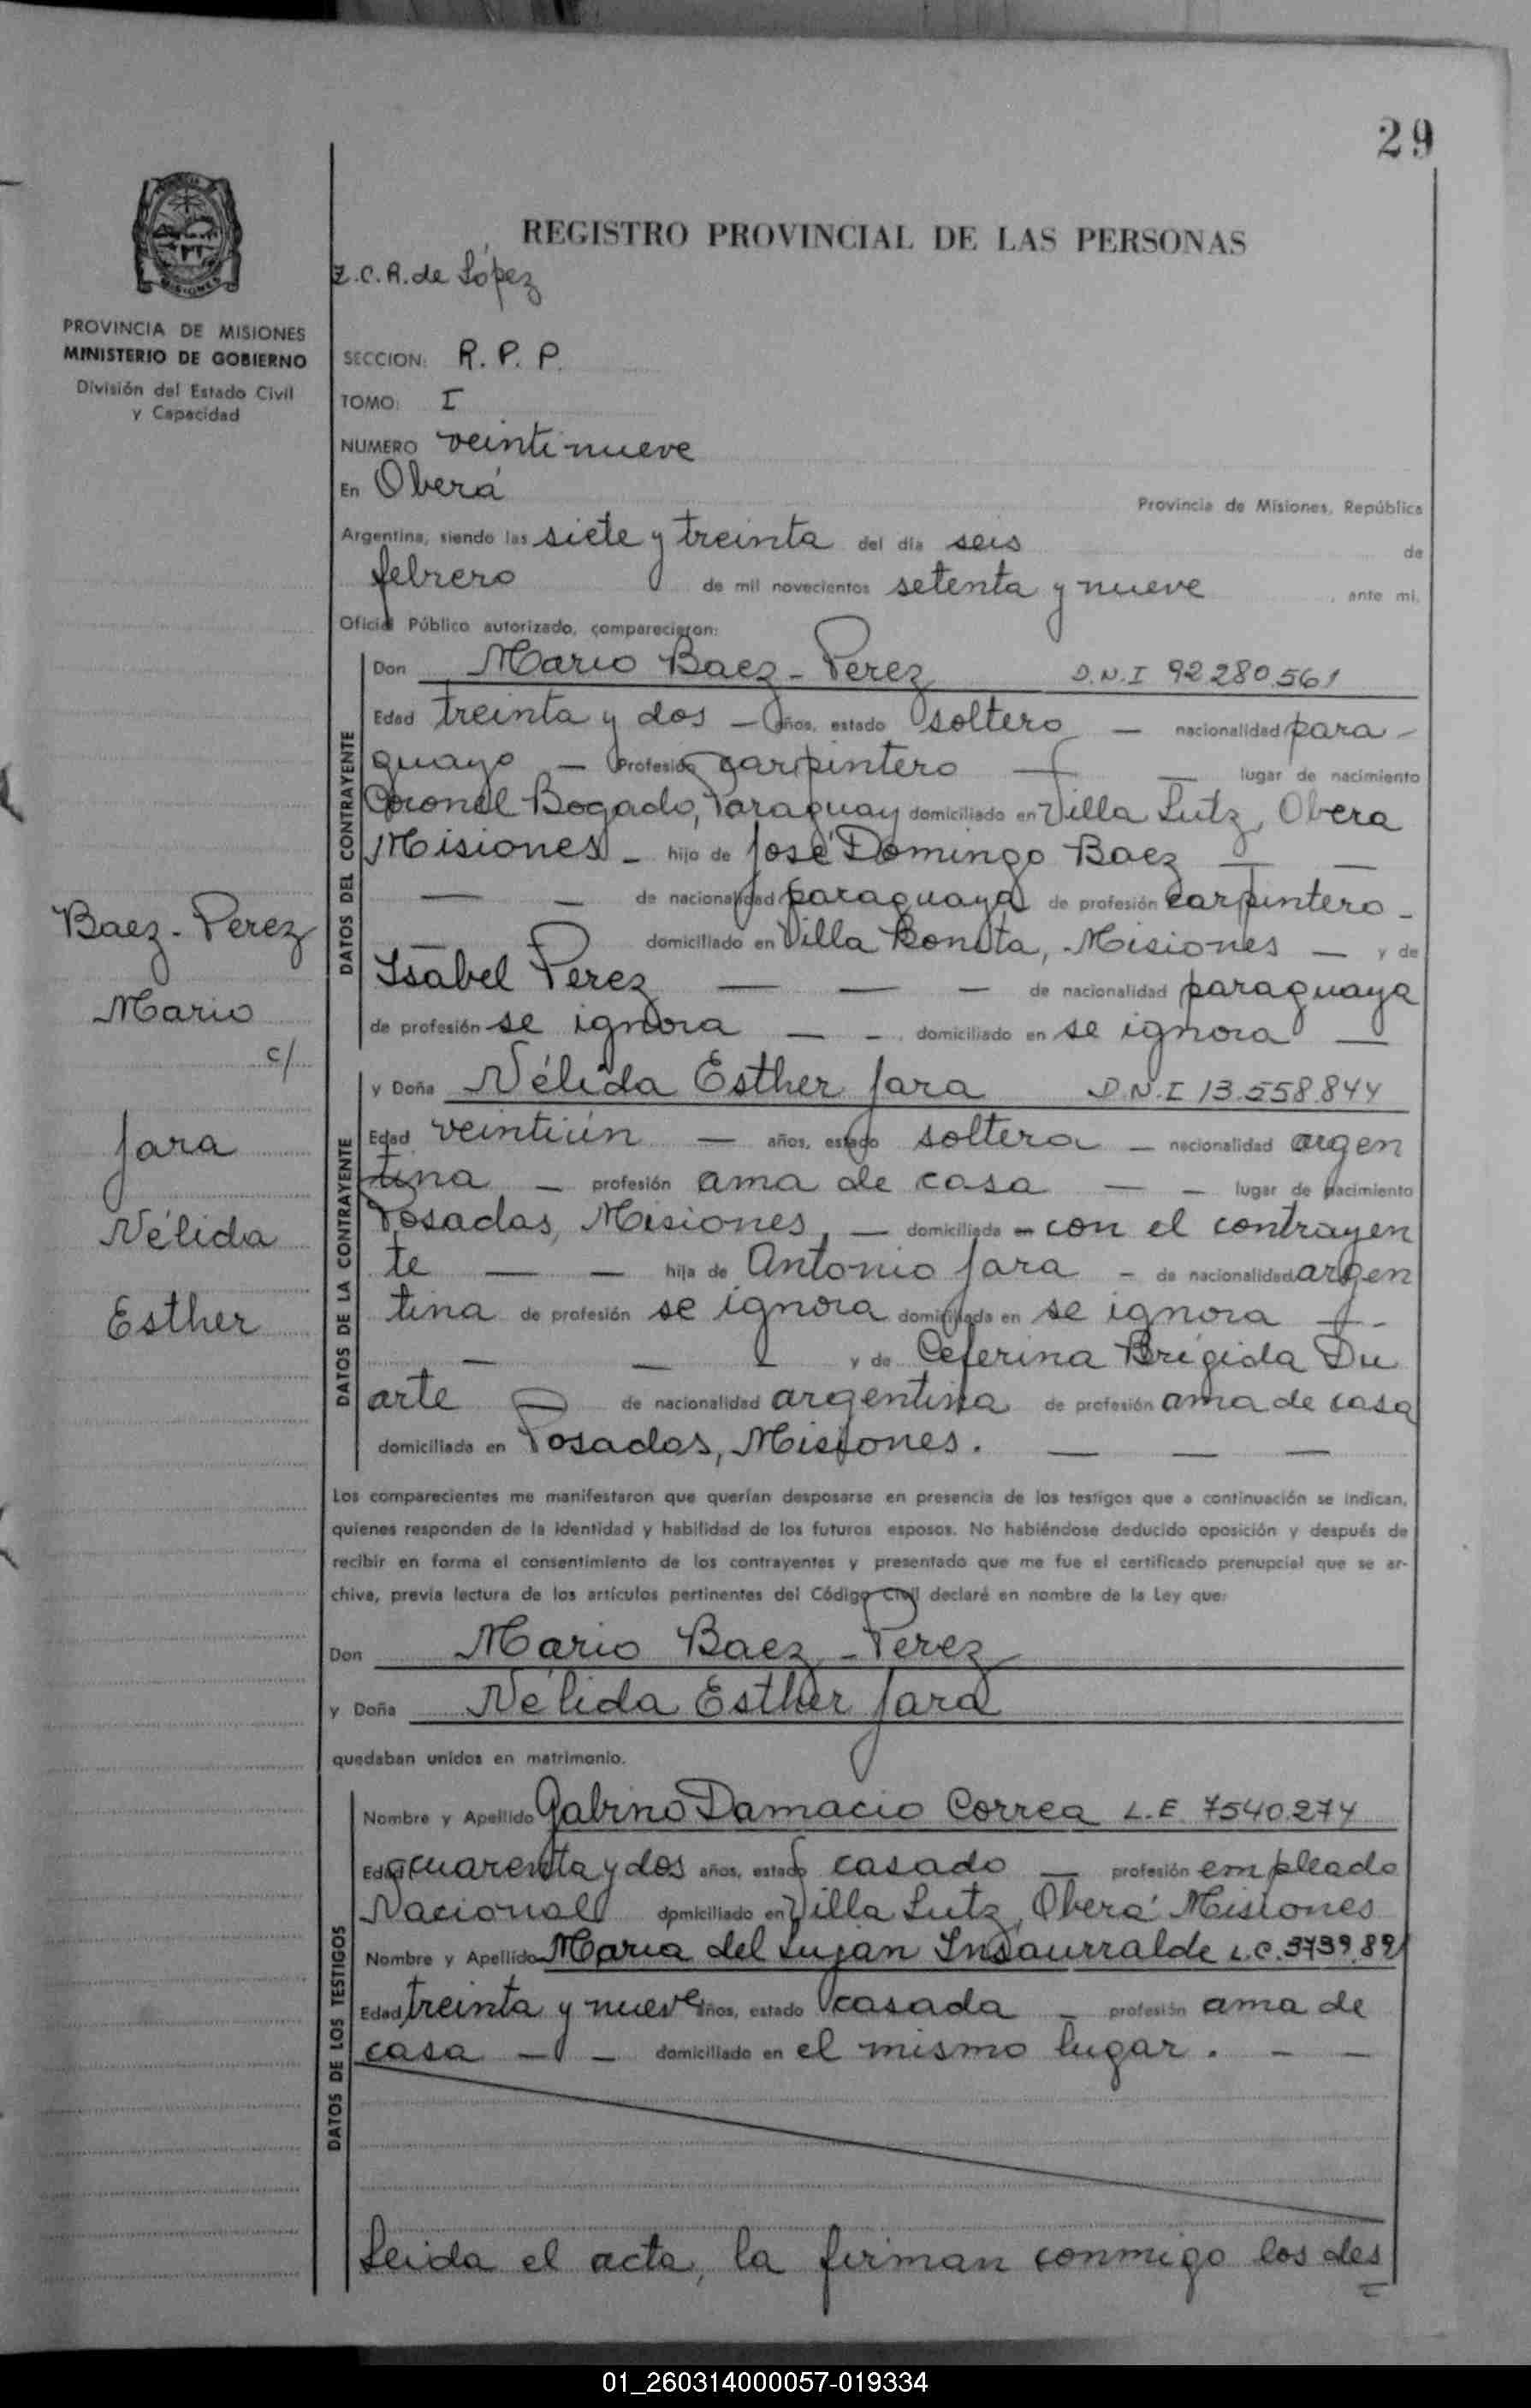 29
REGISTRO PROVINCIAL DE LAS PERSONAS
Z.C.R. de López
PROVINCIA DE MISIONES
MINISTERIO DE GOBIERNO
División del Estado Civil
y Capacidad
SECCION: R. P. P.
TOMO: I
NUMERO veintinueve
En Oberá
Provincia de Misiones, República
Argentina, siendo las siete y treinta del día seis de
febrero de mil novecientos setenta y nueve, ante mí,
Oficial Público autorizado, comparecieron:
DATOS DEL CONTRAYENTE
Don Mario Baez - Perez D.N.I 92280.561
Edad treinta y dos — años, estado soltero — nacionalidad para-
guayo — Profesión carpintero — — lugar de nacimiento
Coronel Bogado, Paraguay domiciliado en Villa Lutz, Obera
Misiones - hijo de José Domingo Baez — —
— — de nacionalidad paraguaya de profesión carpintero -
— domiciliado en Villa Bonita, Misiones — y de
Isabel Perez — — — de nacionalidad paraguaya
de profesión se ignora — - domiciliado en se ignora —
Baez - Perez
Mario
c/
Jara
Nélida
Esther
DATOS DE LA CONTRAYENTE
y Doña Nélida Esther Jara D.N.I 13.558.844
Edad veintiún — años, estado soltera - nacionalidad argen
tina — profesión ama de casa — — lugar de nacimiento
Posadas, Misiones, — domiciliada - con el contrayen
te — — hija de Antonio Jara - de nacionalidad argen
tina de profesión se ignora domiciliada en se ignora — -
— — — y de Ceferina Brígida Du
arte — de nacionalidad argentina de profesión ama de casa
domiciliada en Posadas, Misiones. — — —
Los comparecientes me manifestaron que querían desposarse en presencia de los testigos que a continuación se indican,
quienes responden de la identidad y habilidad de los futuros esposos. No habiéndose deducido oposición y después de
recibir en forma el consentimiento de los contrayentes y presentado que me fue el certificado prenupcial que se ar-
chiva, previa lectura de los artículos pertinentes del Código Civil declaré en nombre de la Ley que:
Don Mario Baez - Perez
y Doña Nélida Esther Jara
quedaban unidos en matrimonio.
DATOS DE LOS TESTIGOS
Nombre y Apellido Gabino Damacio Correa L.E. 7540.274
Edad cuarenta y dos años, estado casado — profesión empleado
Nacional domiciliado en Villa Lutz, Oberá Misiones
Nombre y Apellido Maria del Lujan Insaurralde L.C. 3739.89
Edad treinta y nueve años, estado casada - profesión ama de
casa — - domiciliado en el mismo lugar. - —
Leida el acta, la firman conmigo los des
01_260314000057-019334